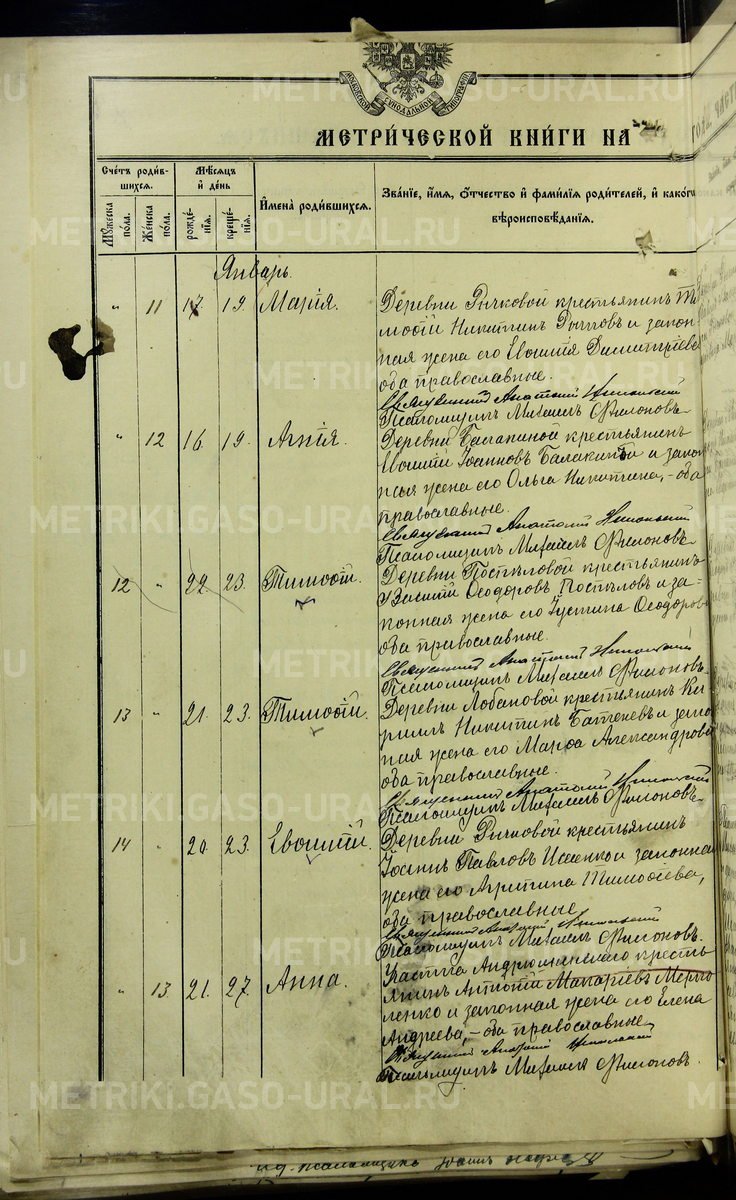 МОСКОВСКОЙ СѴНОДАЛЬНОЙ ТИПОГРАФІИ
МЕТРИ́ЧЕСКОЙ КНИ́ГИ НА
Сче́тъ роди́вшихся.
Мѣ́сяцъ и́ де́нь
И҆мена̀ роди́вшихся.
Зва́нїе, и҆́мя, ѻ҆́тчество и҆ фами́лїя роди́телей, и҆ како́гѡ вѣроисповѣ́данїя.
Мꙋ́жеска по́ла.
Же́нска по́ла.
рожде́нїя.
креще́нїя.
Январь.
" 11 17 19. Марія.
Деревни Рычковой крестьянинъ Ти-
моѳій Никитинъ Рычковъ и закон-
ная жена его Евѳимія Димитріева
оба православные.
Священникъ Анатолій Никольскій
Псаломщикъ Михаилъ Филоновъ.
" 12 16 19. Агнія.
Деревни Балакиной крестьянинъ
Евѳимій Іоанновъ Балакинъ и закон
ная жена его Ольга Никитина, - оба
православные.
Священникъ Анатолій Никольскій
Псаломщикъ Михаилъ Филоновъ.
12 " 22. 23. Тимоѳій.
Деревни Поспѣловой крестьянинъ
Василій Ѳеодоровъ Поспѣловъ и за-
конная жена его Іустина Ѳеодорова
оба православные.
Священникъ Анатолій Никольскій
Псаломщикъ Михаилъ Филоновъ.
13 " 21. 23. Тимоѳій.
Деревни Лобановой крестьянинъ Ки-
риллъ Никитинъ Батеневъ и закон
ная жена его Марѳа Александрова
оба православные.
Священникъ Анатолій Никольскій
Псаломщикъ Михаилъ Филоновъ.
14 " 20. 23. Евѳимій.
Деревни Рычковой крестьянинъ
Іоаннъ Павловъ и законная
жена его Агрипина Тимоѳіева,
оба православные
Священникъ Анатолій Никольскій
Псаломщикъ Михаилъ Филоновъ.
" 13. 21. 27. Анна.
Участка крестья
янинъ Антоній Макаріевъ
ленко и законная жена его Елена
Андреева, - оба православные
Священникъ Анатолій Никольскій
Псаломщикъ Михаилъ Филоновъ.
METRIKI.GASO-URAL.RU